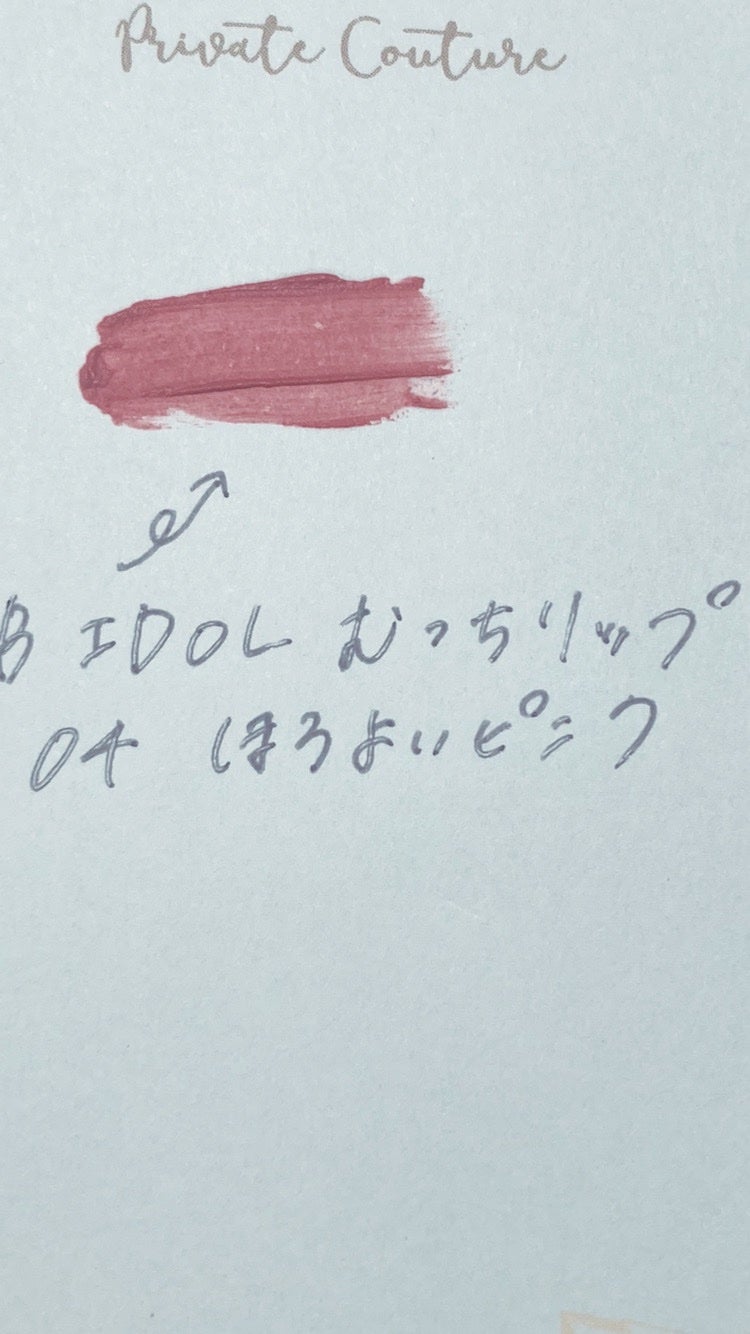 Private Couture
B IDOL むっちリップ
04 ほろよいピンク